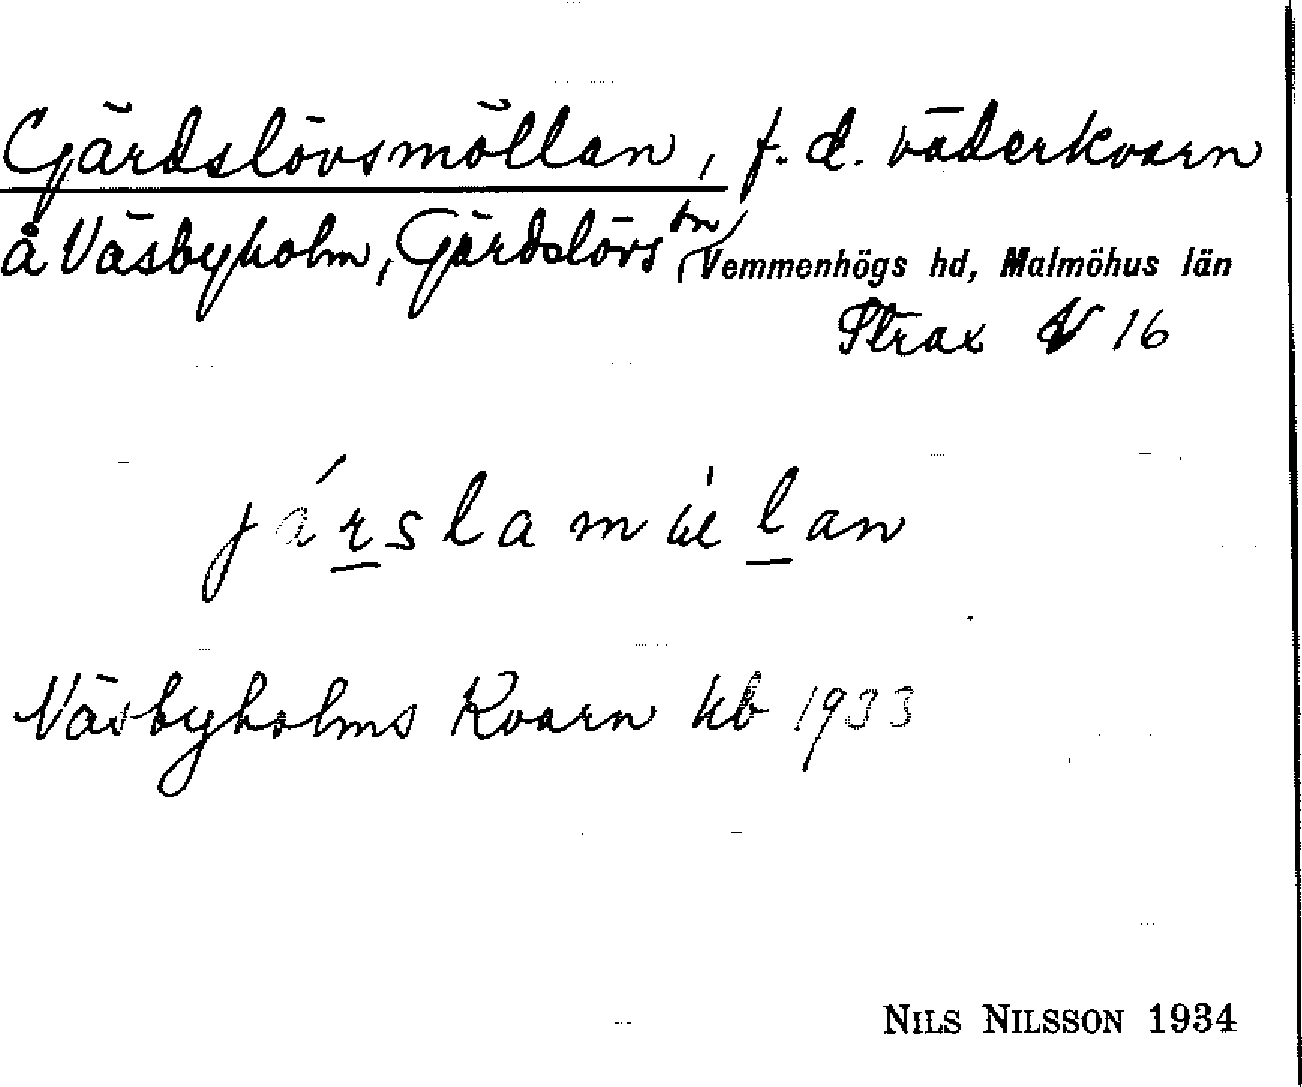 Gärdslövsmöllan, f. d. väderkvarn
å Väsbyholm, Gärdslövs sn, Vemmenhögs hd, Malmöhus län
Strax V 16
järslamúelan
Näsbyholms Kvarn kb 1933
NILS NILSSON 1934